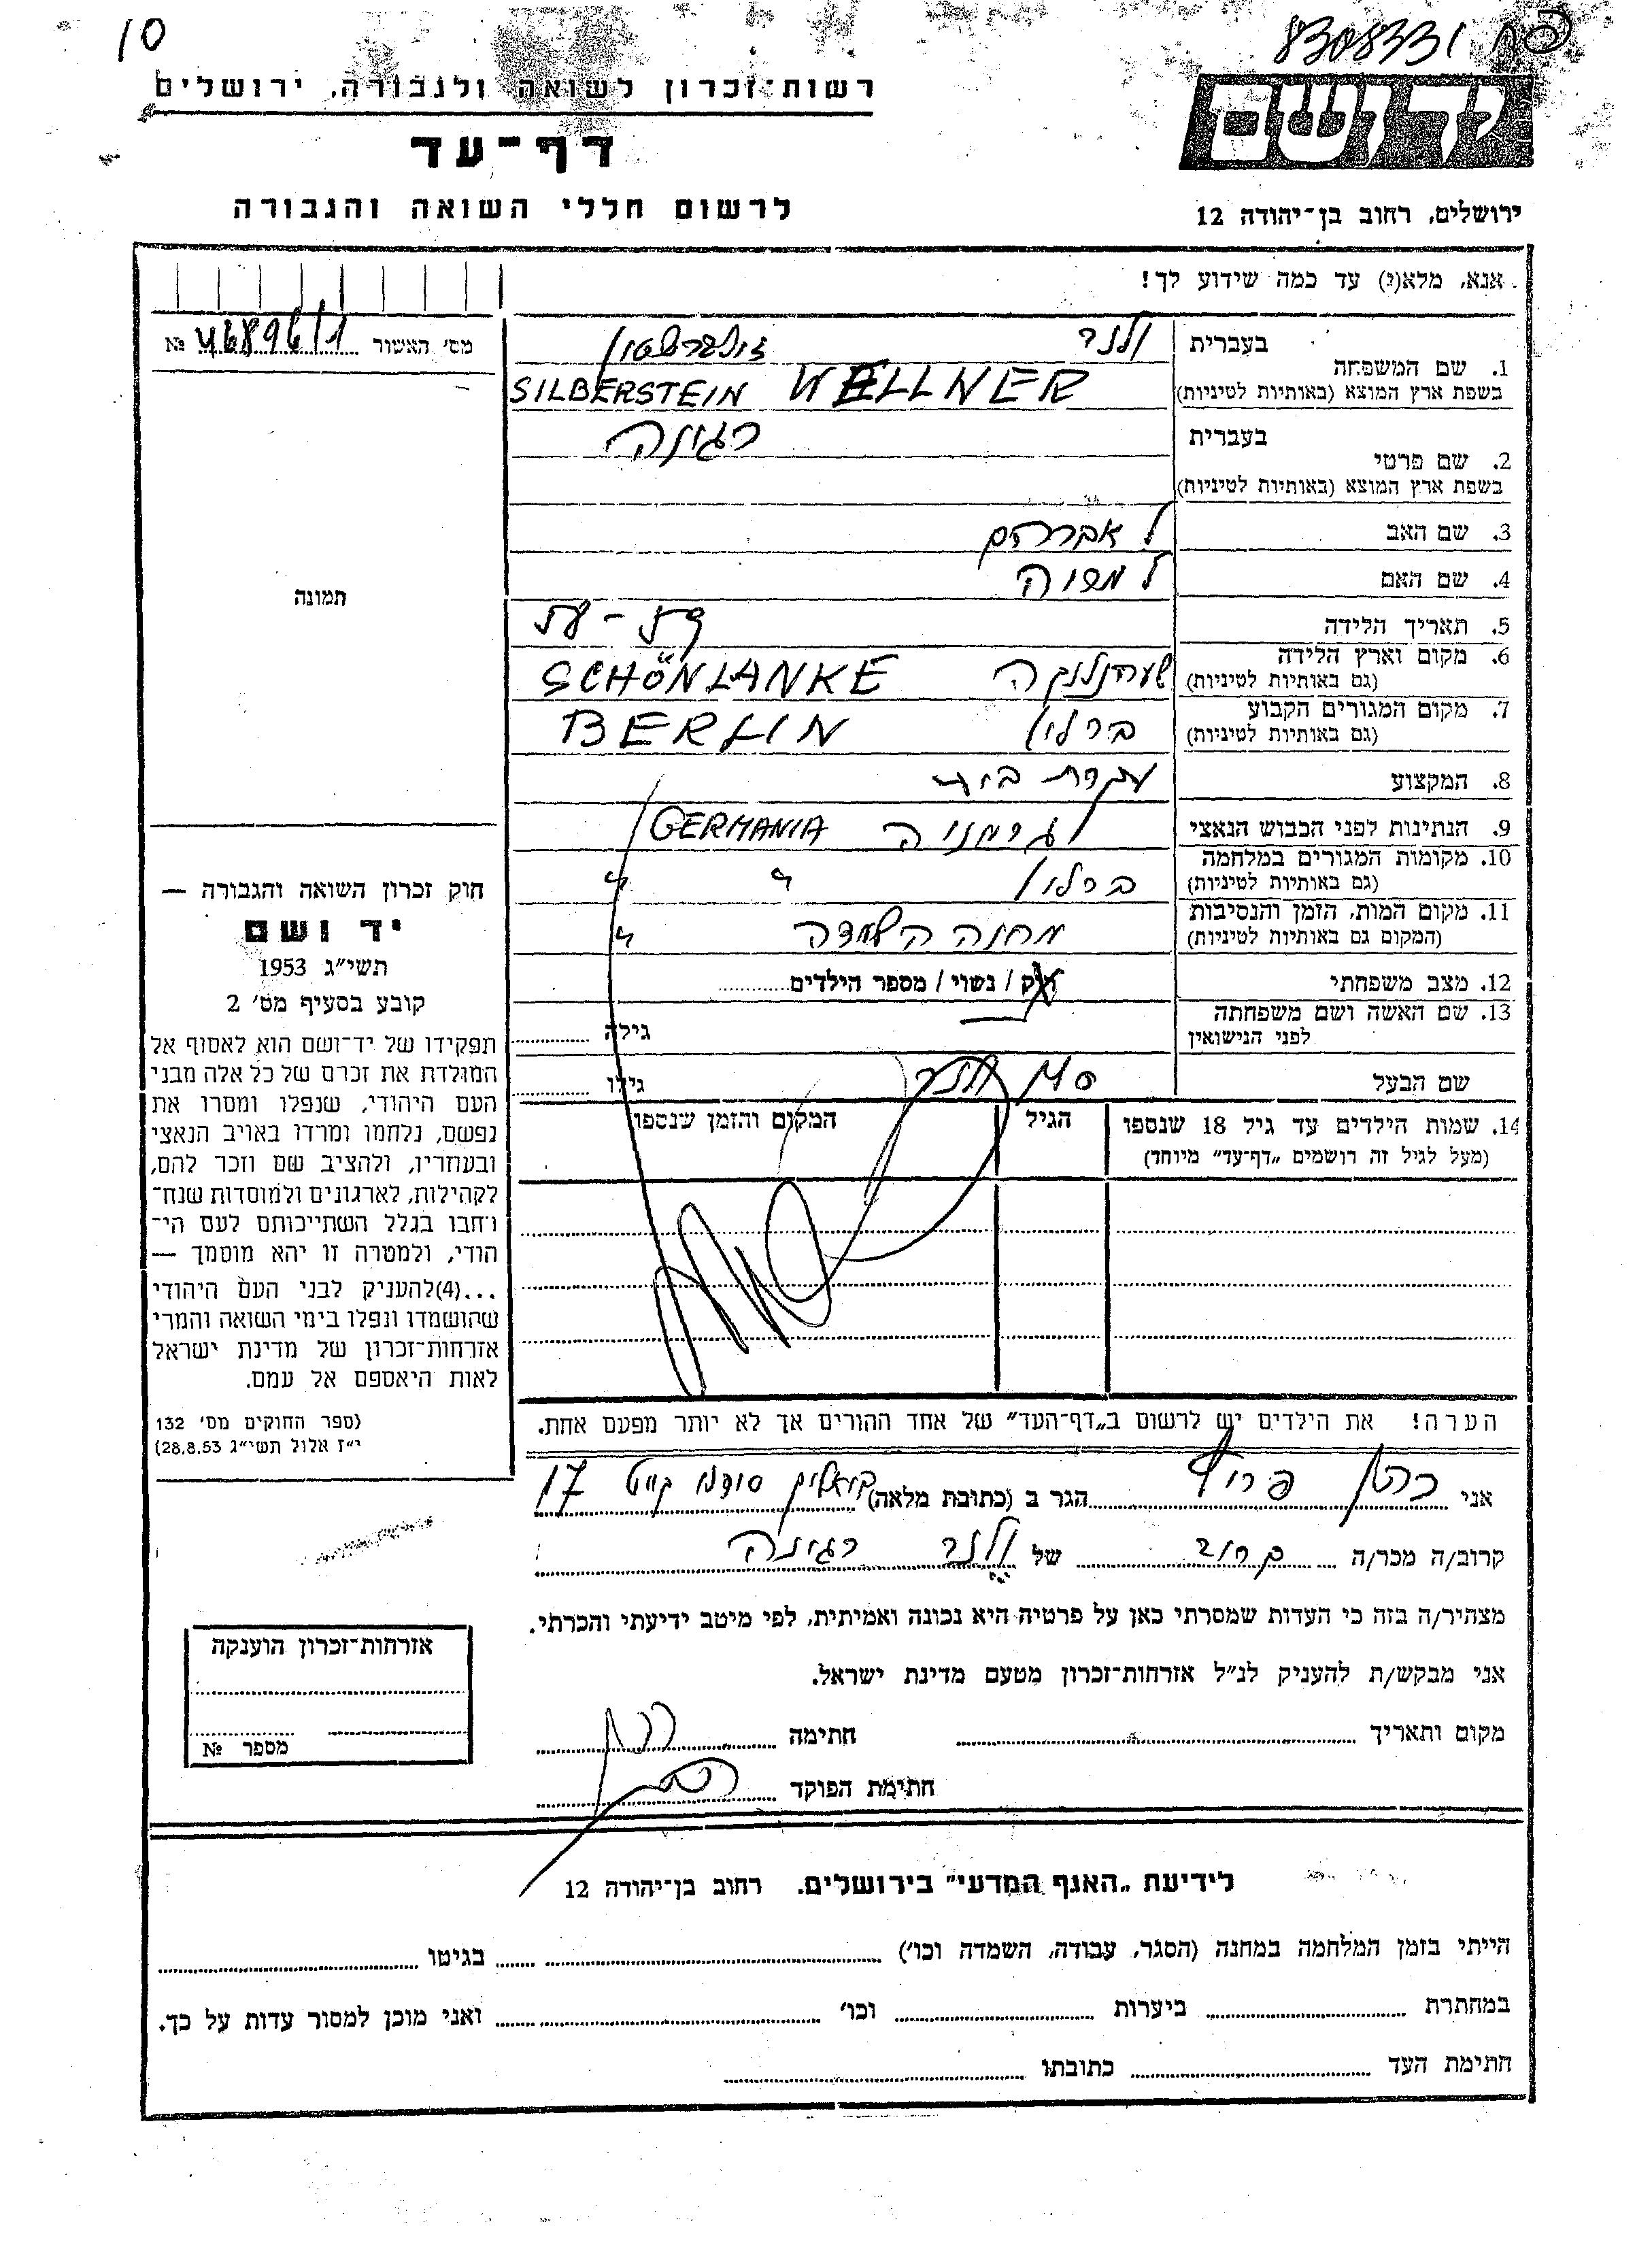 10
8308331
רשות־זכרון לשואה ולגבורה, ירושלים
דף־עד
לרשום חללי השואה והגבורה
ידושם
ירושלים, רחוב בן־יהודה 12
אנא, מלא(י) עד כמה שידוע לך!
מס׳ האשור 46896/1 №
1. שם המשפחה
בעברית ולנר זילברשטיין
בשפת ארץ המוצא (באותיות לטיניות) SILBERSTEIN WALLNER
2. שם פרטי
בעברית רגינה
בשפת ארץ המוצא (באותיות לטיניות)
3. שם האב אברהם
4. שם האם
5. תאריך הלידה
6. מקום וארץ הלידה
(גם באותיות לטיניות) שענלנקה SCHÖNLANKE
7. מקום המגורים הקבוע
(גם באותיות לטיניות) ברלין BERLIN
8. המקצוע עקרת בית
9. הנתינות לפני הכבוש הנאצי גרמניה GERMANIA
10. מקומות המגורים במלחמה
(גם באותיות לטיניות) ברלין " "
11. מקום המות, הזמן והנסיבות
(המקום גם באותיות לטיניות) מחנה השמדה "
12. מצב משפחתי רוק / נשוי / מספר הילדים
13. שם האשה ושם משפחתה
לפני הנישואין גילה
שם הבעל ולנר גילו
14. שמות הילדים עד גיל 18 שנספו
(מעל לגיל זה רושמים „דף־עד” מיוחד)
הגיל
המקום והזמן שנספו
הערה! את הילדים יש לרשום ב„דף־העד” של אחד ההורים אך לא יותר מפעם אחת.
תמונה
חוק זכרון השואה והגבורה —
יד ושם
תשי״ג 1953
קובע בסעיף מס׳ 2
תפקידו של יד־ושם הוא לאסוף אל
המולדת את זכרם של כל אלה מבני
העם היהודי, שנפלו ומסרו את
נפשם, נלחמו ומרדו באויב הנאצי
ובעוזריו, ולהציב שם וזכר להם,
לקהילות, לארגונים ולמוסדות שנח־
רבו בגלל השתייכותם לעם הי־
הודי, ולמטרה זו יהא מוסמך —
...(4)להעניק לבני העם היהודי
שהושמדו ונפלו בימי השואה והמרי
אזרחות־זכרון של מדינת ישראל
לאות היאספם אל עמם.
(ספר החוקים מס׳ 132
י״ז אלול תשי״ג 28.8.53)
אני הגר ב (כתובת מלאה) 17
קרוב/ה מכר/ה קרוב של ולנר רגינה
מצהיר/ה בזה כי העדות שמסרתי כאן על פרטיה היא נכונה ואמיתית, לפי מיטב ידיעתי והכרתי.
אני מבקש/ת להעניק לנ״ל אזרחות־זכרון מטעם מדינת ישראל.
מקום ותאריך חתימה
חתימת הפוקד
אזרחות־זכרון הוענקה
מספר №
לידיעת „האגף המדעי” בירושלים. רחוב בן־יהודה 12
הייתי בזמן המלחמה במחנה (הסגר, עבודה, השמדה וכו׳) בגיטו
במחתרת ביערות וכו׳ ואני מוכן למסור עדות על כך.
חתימת העד כתובתו